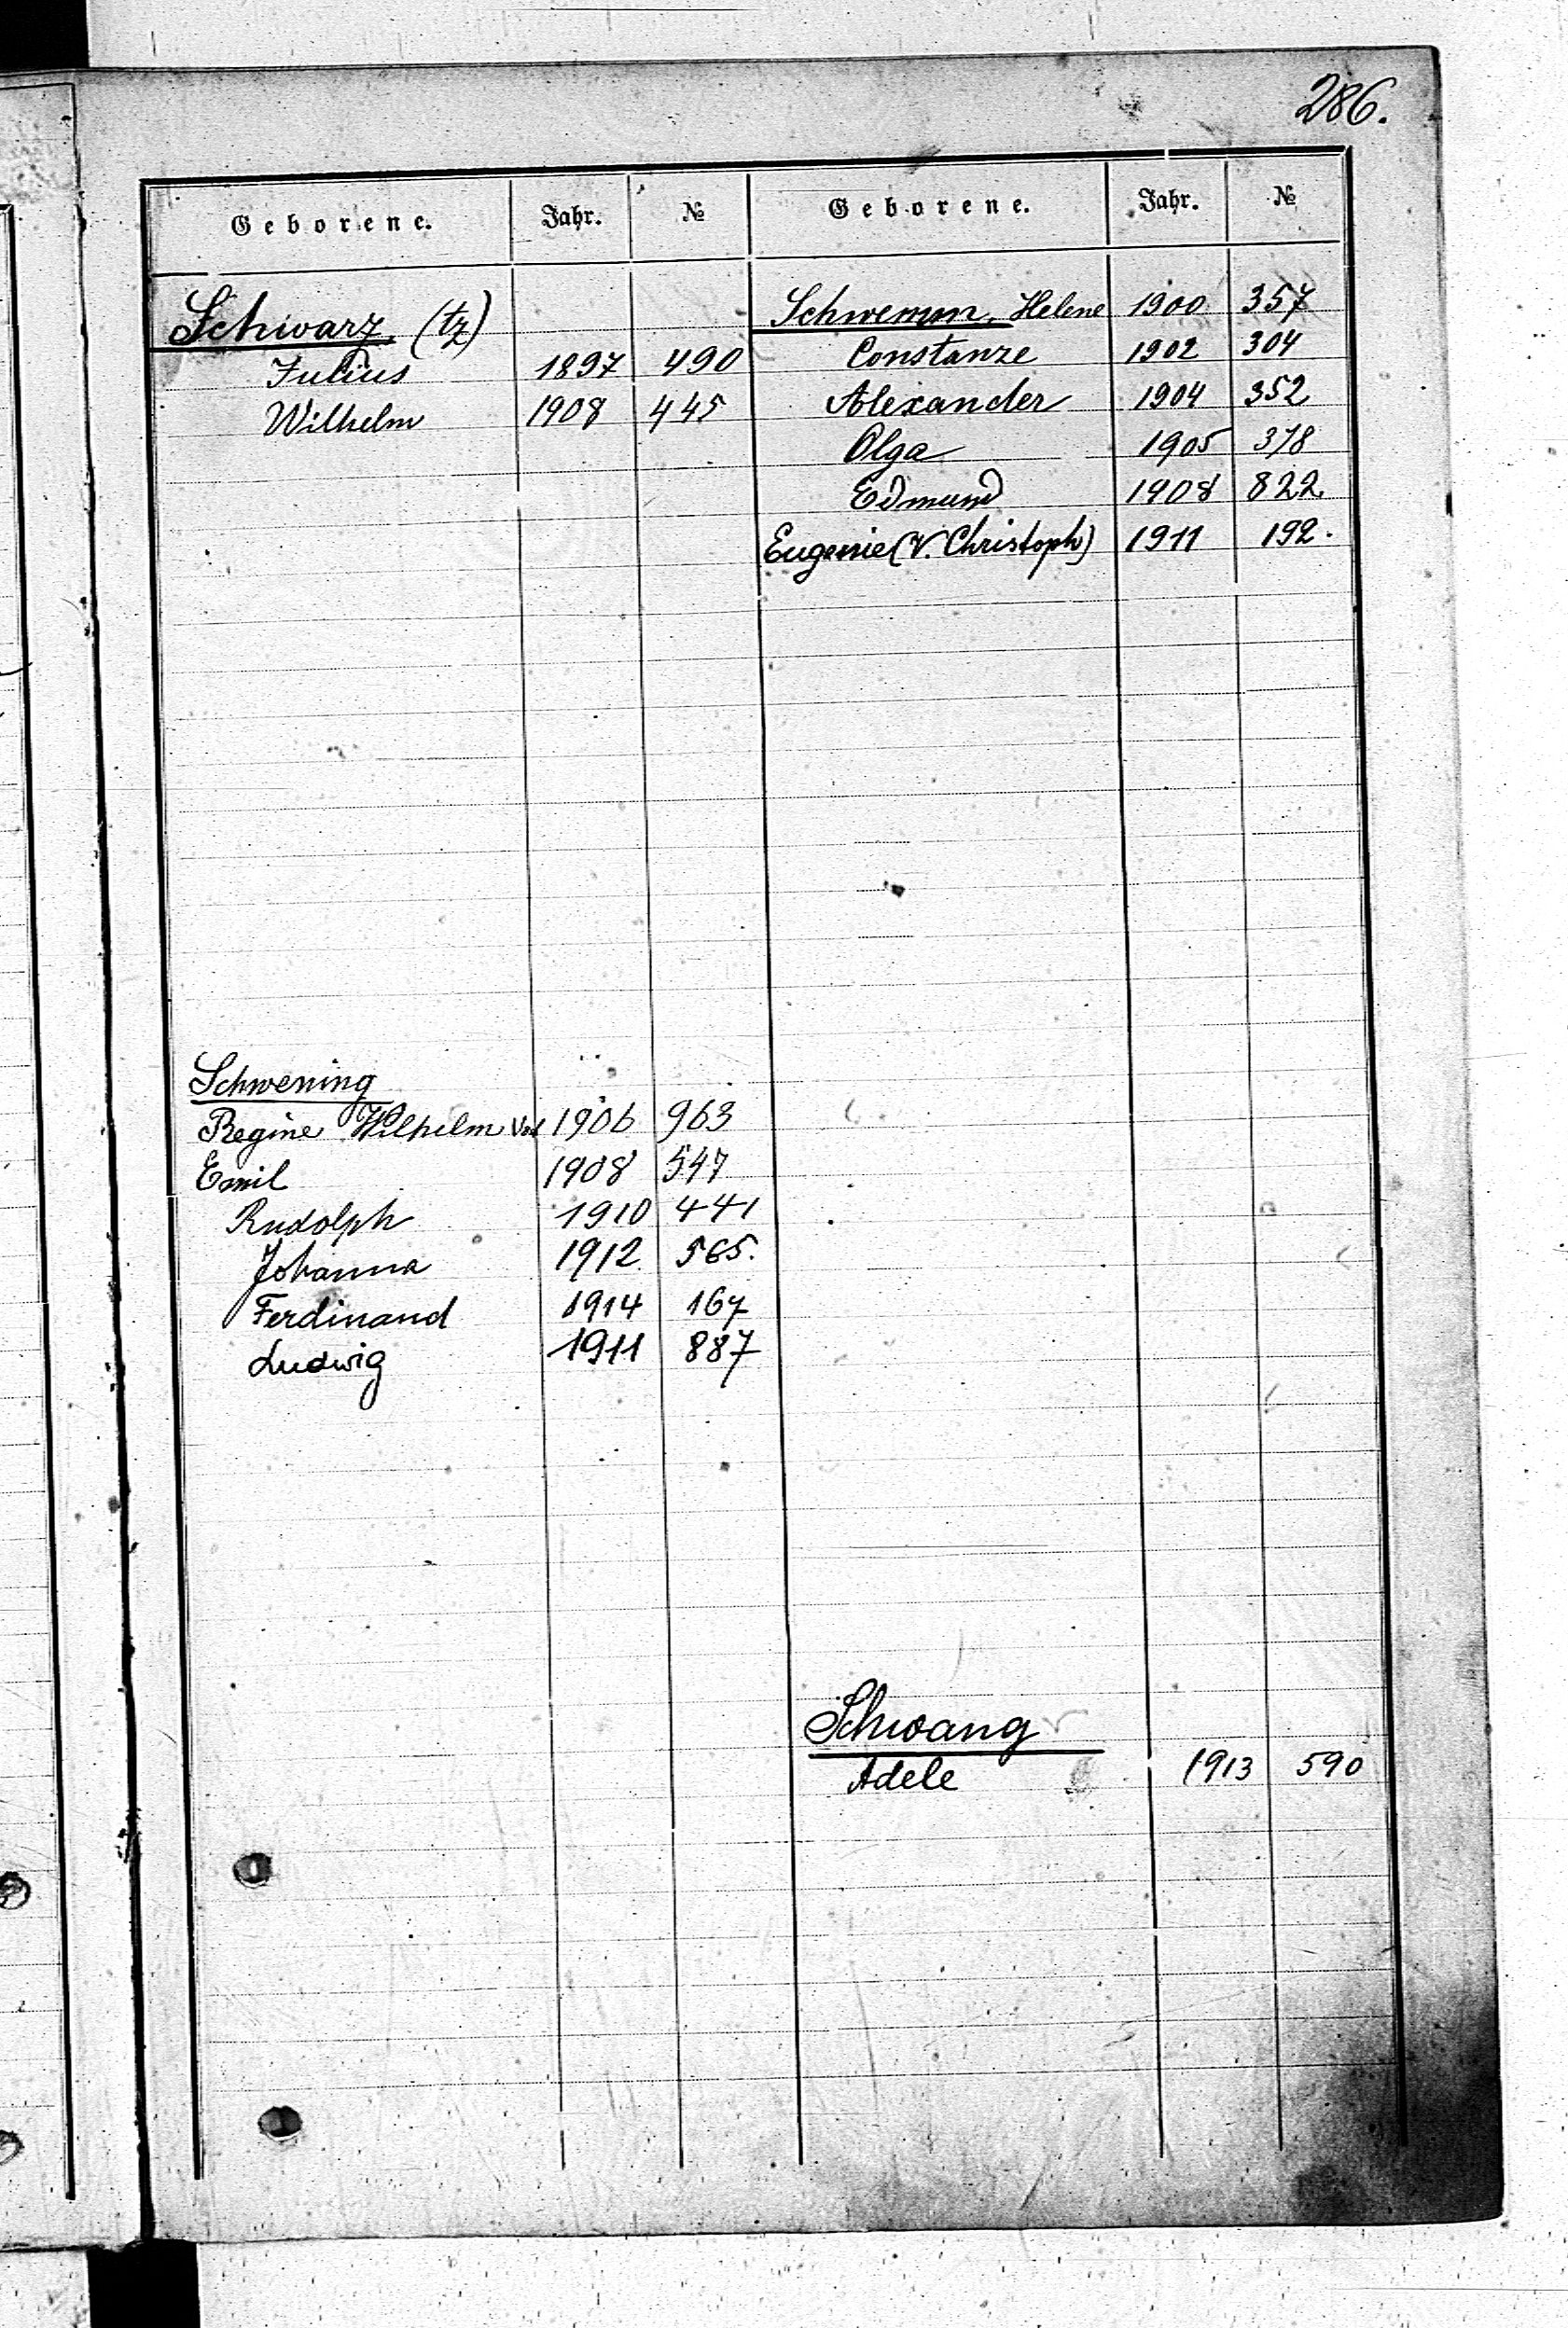 286.
Geborene. Jahr. №
Schwarz, (tz)
Julius 1897 490
Wilhelm 1908 445
Schwening
Regine Wilhelm Vat 1906 963
Emil 1908 547
Rudolph 1910 441
Johanna 1912 565.
Ferdinand 1914 167
Ludwig 1911 887
Geborene. Jahr. №
Schwemm, Helene 1900 357
Constanze 1902 304
Alexander 1904 352
Olga 1905 378
Edmund 1908 822
Eugenie (V. Christoph) 1911 192.
Schwang
Adele 1913 590